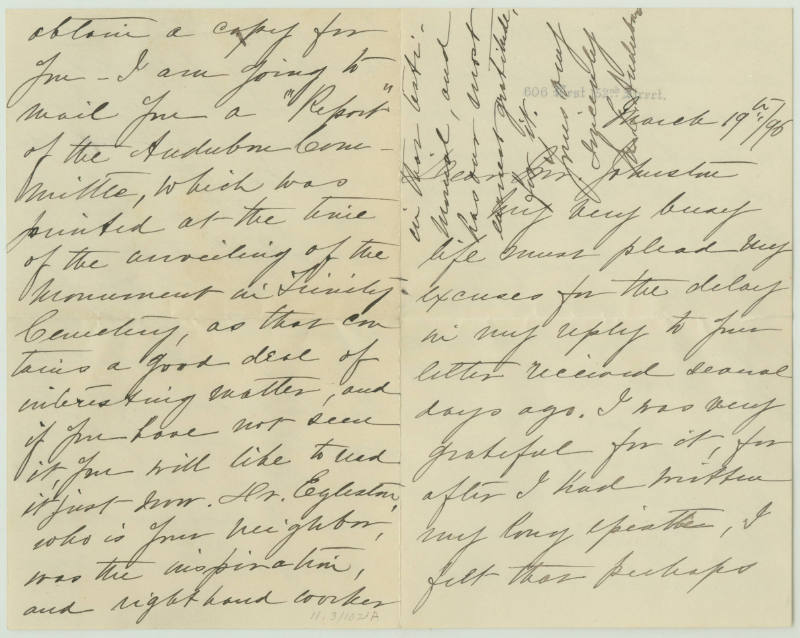 606 West 152nd Street.
March 19th/96
Dear Mr. Johnston
My very busy
life must plead my
excuses for the delay
in my reply to your
letter received several
days ago. I was very
grateful for it, for
after I had written
my long epistle, I
felt that perhaps
obtain a copy for
you - I am going to
mail you a "Report"
of the Audubon Com-
mittee, which was
printed at the time
of the unveiling of the
Monument in Trinity
Cemetery, as that con
tains a good deal of
interesting matter, and
if you have not seen
it, you will like to read
it just now. Dr. Egleston,
who is your neighbor,
was the inspiration,
and right hand worker
in that testi-
monial, and
has our most
earnest gratitude,
for it.
Sincerely
Audubon
11.3/1021A